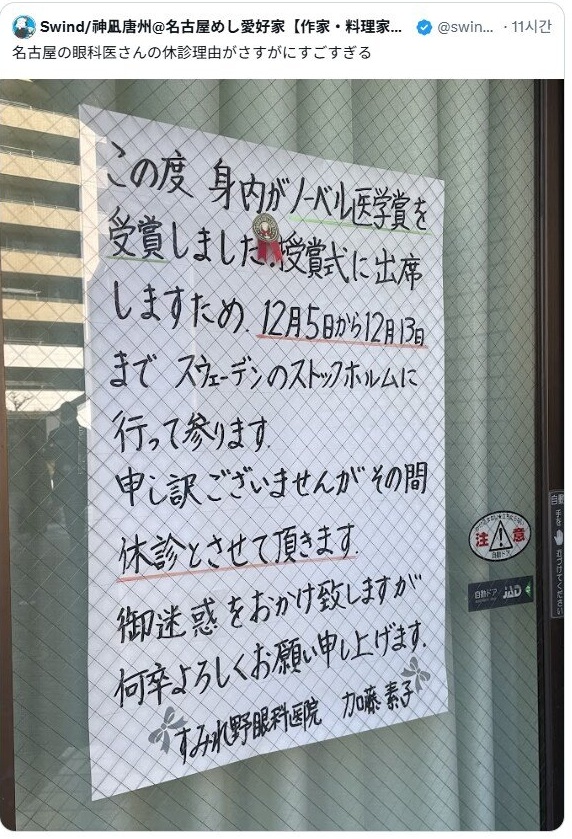 Swind/神凪唐州@名古屋めし愛好家【作家・料理家... @swin... · 11시간
名古屋の眼科医さんの休診理由がさすがにすごすぎる
この度 身内がノーベル医学賞を
受賞しました.授賞式に出席
しますため.12月5日から12月13日
まで スウェーデンのストックホルムに
行って参ります.
申し訳ございませんがその間
休診とさせて頂きます.
御迷惑をおかけ致しますが
何卒よろしくお願い申し上げます.
すみれ野眼科医院 加藤素子
注意
自動ドア
自動ドア JAD
自動
手をふれてください